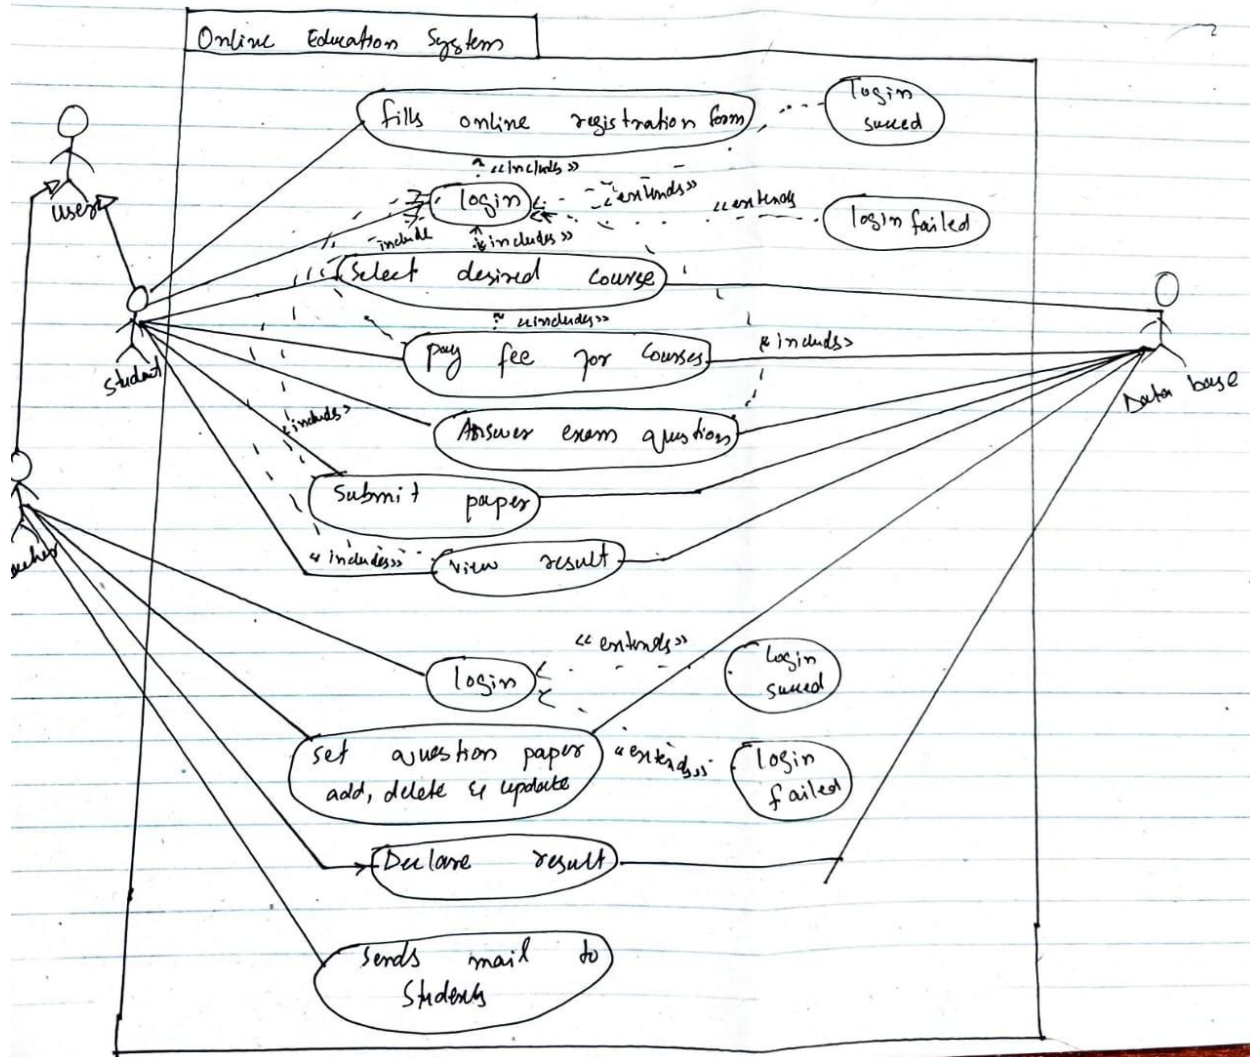 Online Education System
fills online registration form
login
succed
«includes»
user
login
«extends»
«extends
login failed
include
«includes»
Select desired course
«includes»
pay fee for Courses
«includes>
student
Data base
Answer exam questions
<includes>
Submit paper
«includes»
view result
«extends»
login
login
succed
set question paper
add, delete & update
«extends»
login
failed
Declare result
sends mail to
Students